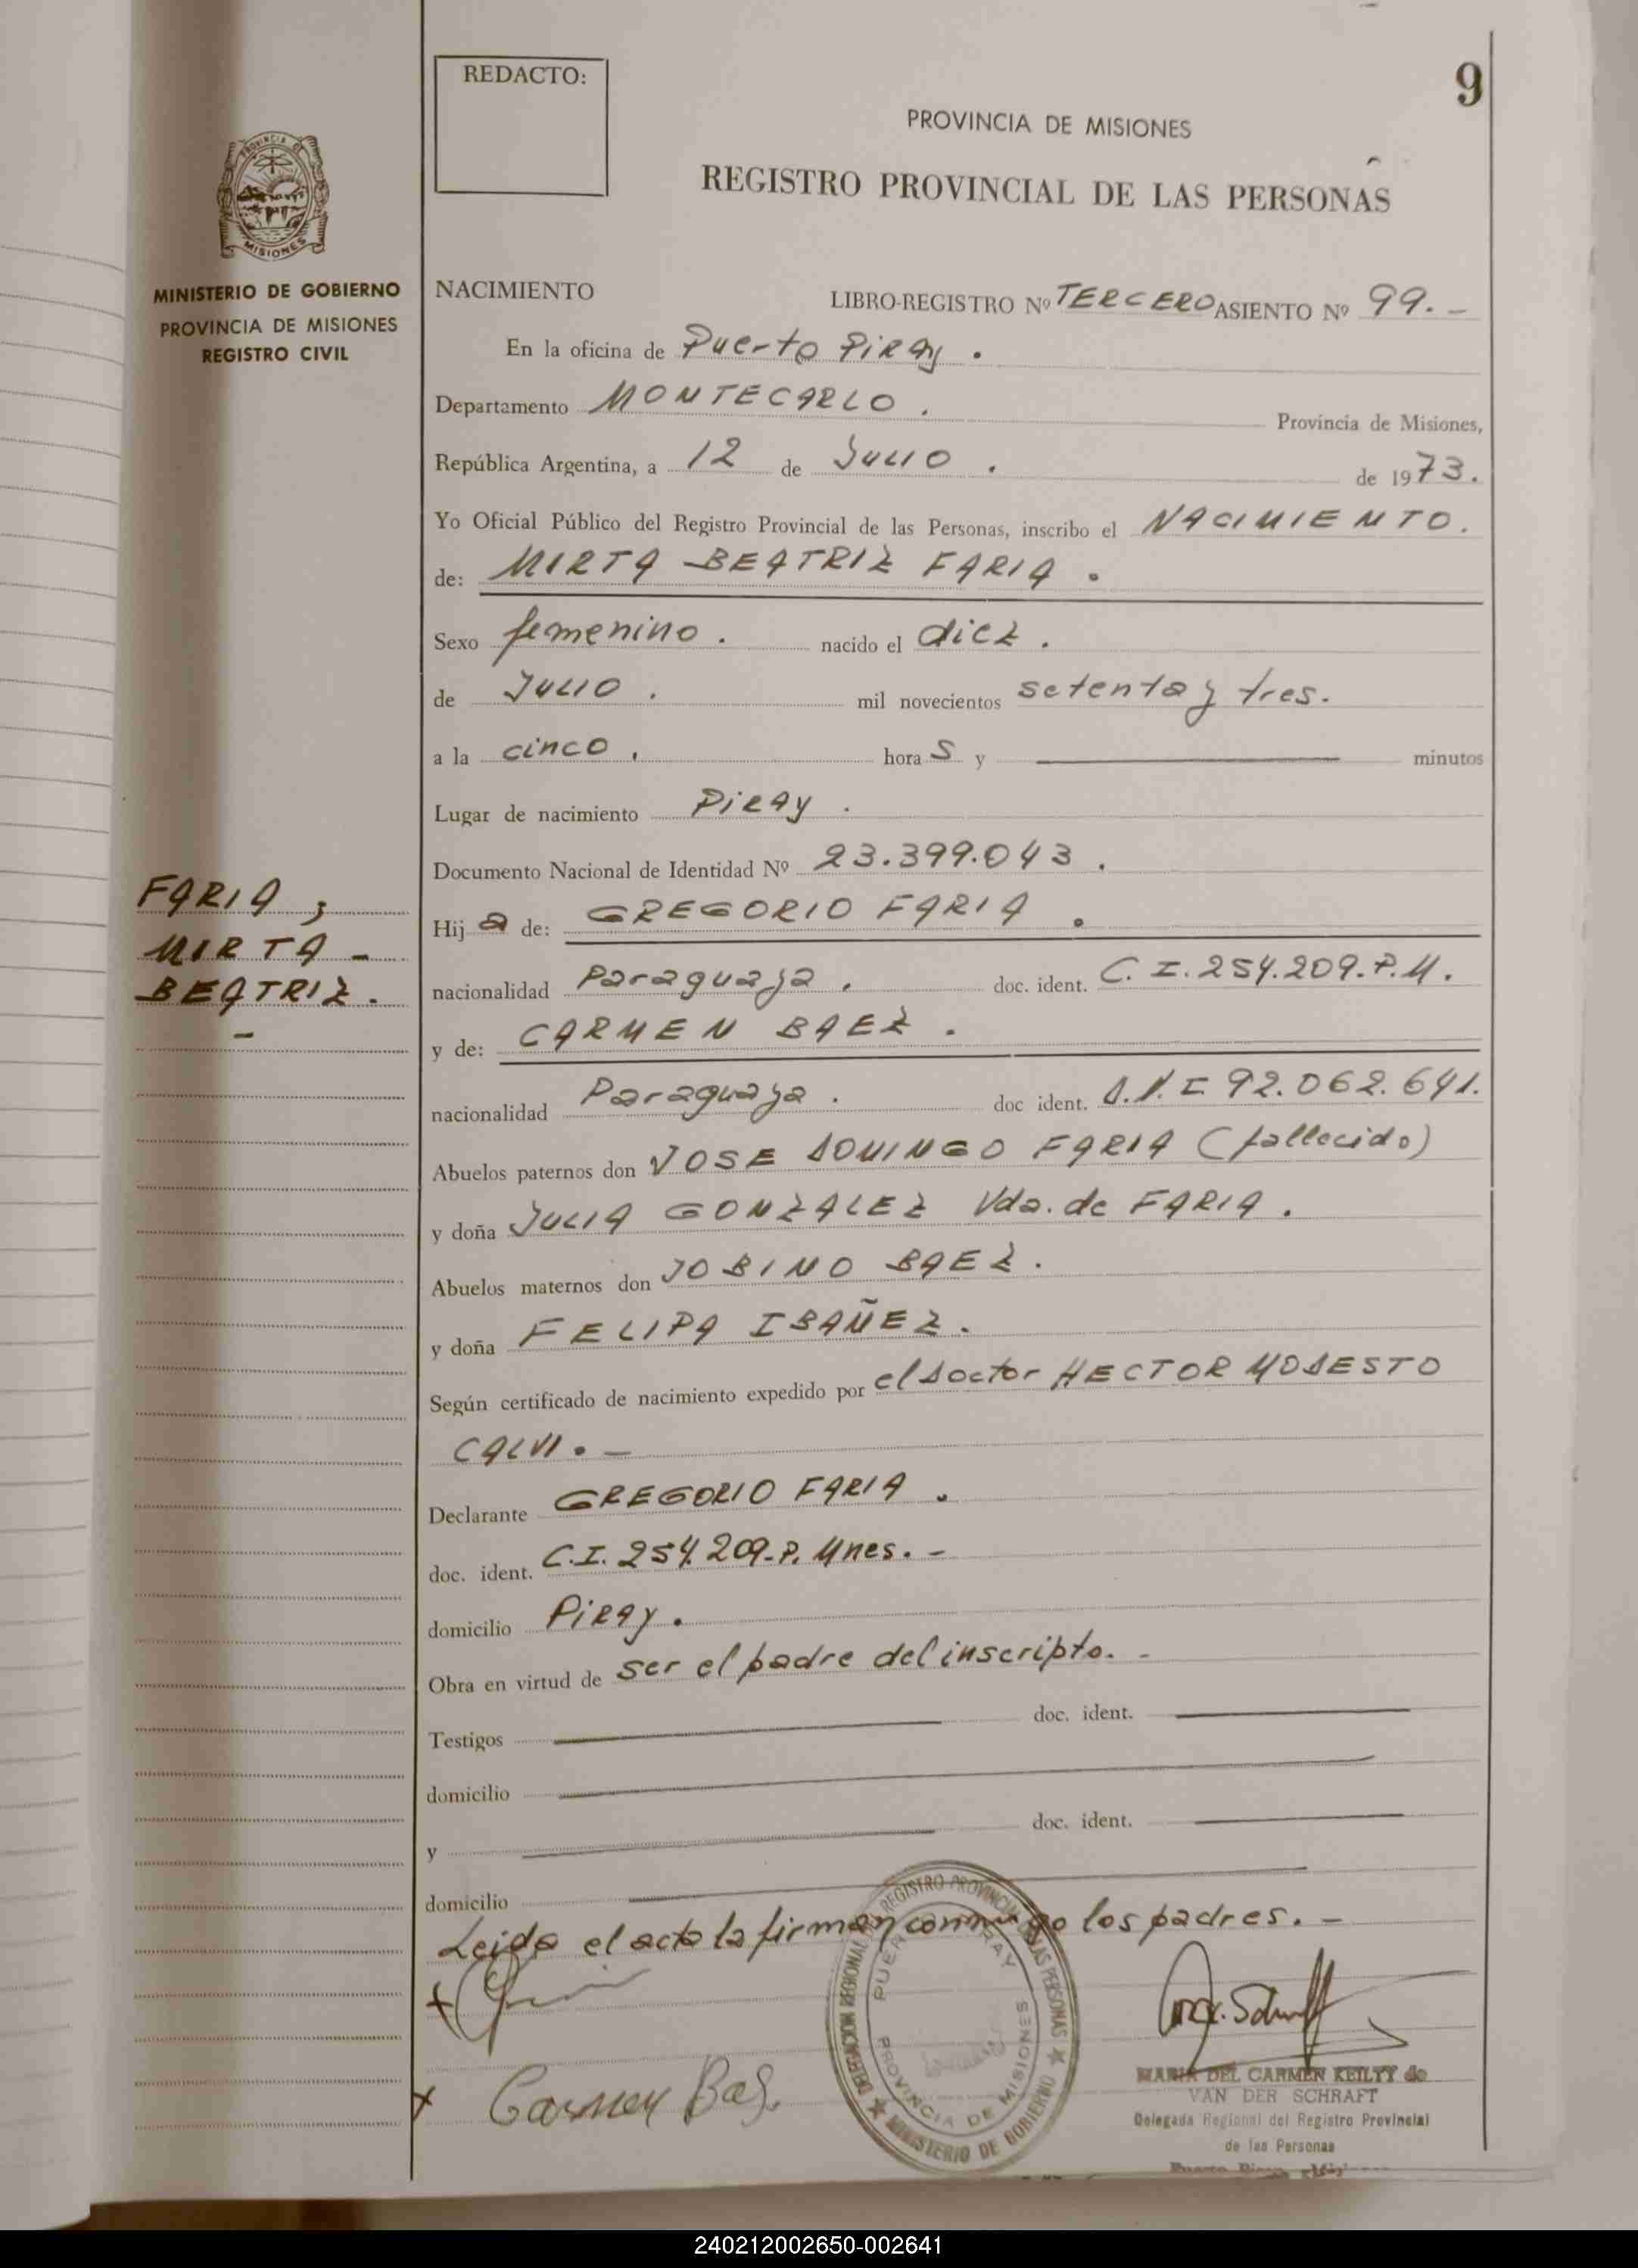 REDACTO:
9
PROVINCIA DE MISIONES
REGISTRO PROVINCIAL DE LAS PERSONAS
PROVINCIA DE
MISIONES
MINISTERIO DE GOBIERNO
PROVINCIA DE MISIONES
REGISTRO CIVIL
NACIMIENTO LIBRO-REGISTRO Nº TERCERO ASIENTO Nº 99. -
En la oficina de Puerto Piray .
Departamento MONTECARLO . Provincia de Misiones,
República Argentina, a 12 de Julio . de 1973.
Yo Oficial Público del Registro Provincial de las Personas, inscribo el NACIMIENTO.
de: MIRTA BEATRIZ FARIA .
Sexo femenino . nacido el diez .
de Julio . mil novecientos setenta y tres.
a la cinco . hora s y minutos
Lugar de nacimiento Piray .
Documento Nacional de Identidad Nº 23.399.043 .
FARIA ;
MIRTA -
BEATRIZ .
-
Hij a de: GREGORIO FARIA .
nacionalidad Paraguaya . doc. ident. C. I. 254.209. P. M.
y de: CARMEN BAEZ .
nacionalidad Paraguaya . doc ident. D.N.I 92.062.641.
Abuelos paternos don JOSE DOMINGO FARIA (fallecido)
y doña JULIA GONZALEZ Vda. de FARIA .
Abuelos maternos don JOBINO BAEZ .
y doña FELIPA IBAÑEZ .
Según certificado de nacimiento expedido por el Doctor HECTOR MODESTO
CALVI . -
Declarante GREGORIO FARIA .
doc. ident. C.I. 254.209-P. Mnes. -
domicilio Piray .
Obra en virtud de ser el padre del inscripto. -
Testigos doc. ident.
domicilio
y doc. ident.
domicilio
Leida el acta la firman conmigo los padres. -
DELEGACION REGIONAL DEL REGISTRO PROVINCIAL DE LAS PERSONAS
PUERTO PIRAY
PROVINCIA DE MISIONES
MINISTERIO DE GOBIERNO
Carmen Baez
MARIA DEL CARMEN KEILTY de
VAN DER SCHRAFT
Delegada Regional del Registro Provincial
de las Personas
240212002650-002641